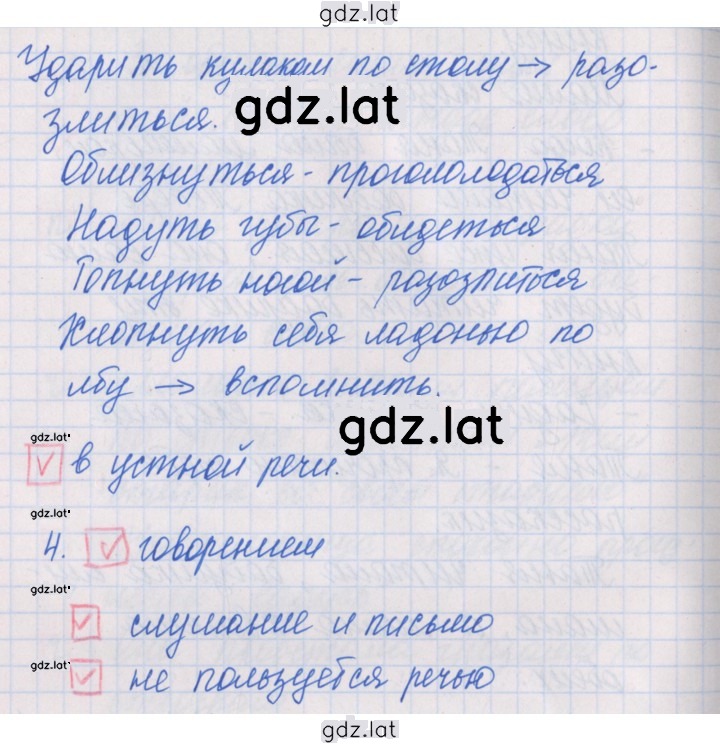 gdz.lat
Ударить кулаком по столу → разо-
злиться.
gdz.lat
Облизнуться - проголодаться
Надуть губы - обидеться
Топнуть ногой - разозлиться
Хлопнуть себя ладонью по
лбу → вспомнить.
gdz.lat
gdz.lat
в устной речи.
gdz.lat
4. говорением
gdz.lat
слушание и письмо
gdz.lat
не пользуется речью
gdz.lat